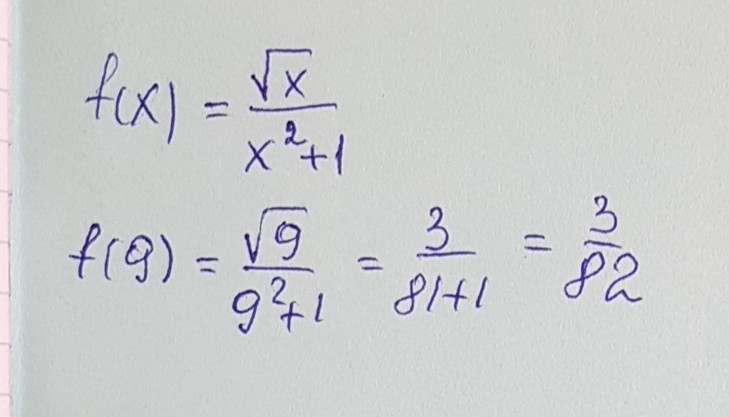 f(x) = √x / x²+1
f(9) = √9 / 9²+1 = 3 / 81+1 = 3 / 82